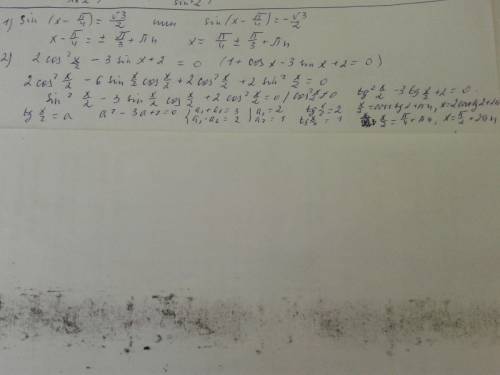 1) sin (x - π/4) = √3/2 или sin (x - π/4) = -√3/2
x - π/4 = ± π/3 + πn x = π/4 ± π/3 + πn
2) 2 cos² x/2 - 3 sin x + 2 = 0 (1 + cos x - 3 sin x + 2 = 0)
2 cos² x/2 - 6 sin x/2 cos x/2 + 2 cos² x/2 + 2 sin² x/2 = 0
sin² x/2 - 3 sin x/2 cos x/2 + 2 cos² x/2 = 0 / cos² x/2 ≠ 0 tg² x/2 - 3 tg x/2 + 2 = 0
tg x/2 = a a² - 3a + 2 = 0 { a₁ + a₂ = 3 a₁·a₂ = 2 } a₁ = 2 a₂ = 1 tg x/2 = 2 tg x/2 = 1 x/2 = arctg 2 + πn, x = 2 arctg 2 + 2πn x/2 = π/4 + πn, x = π/2 + 2πn